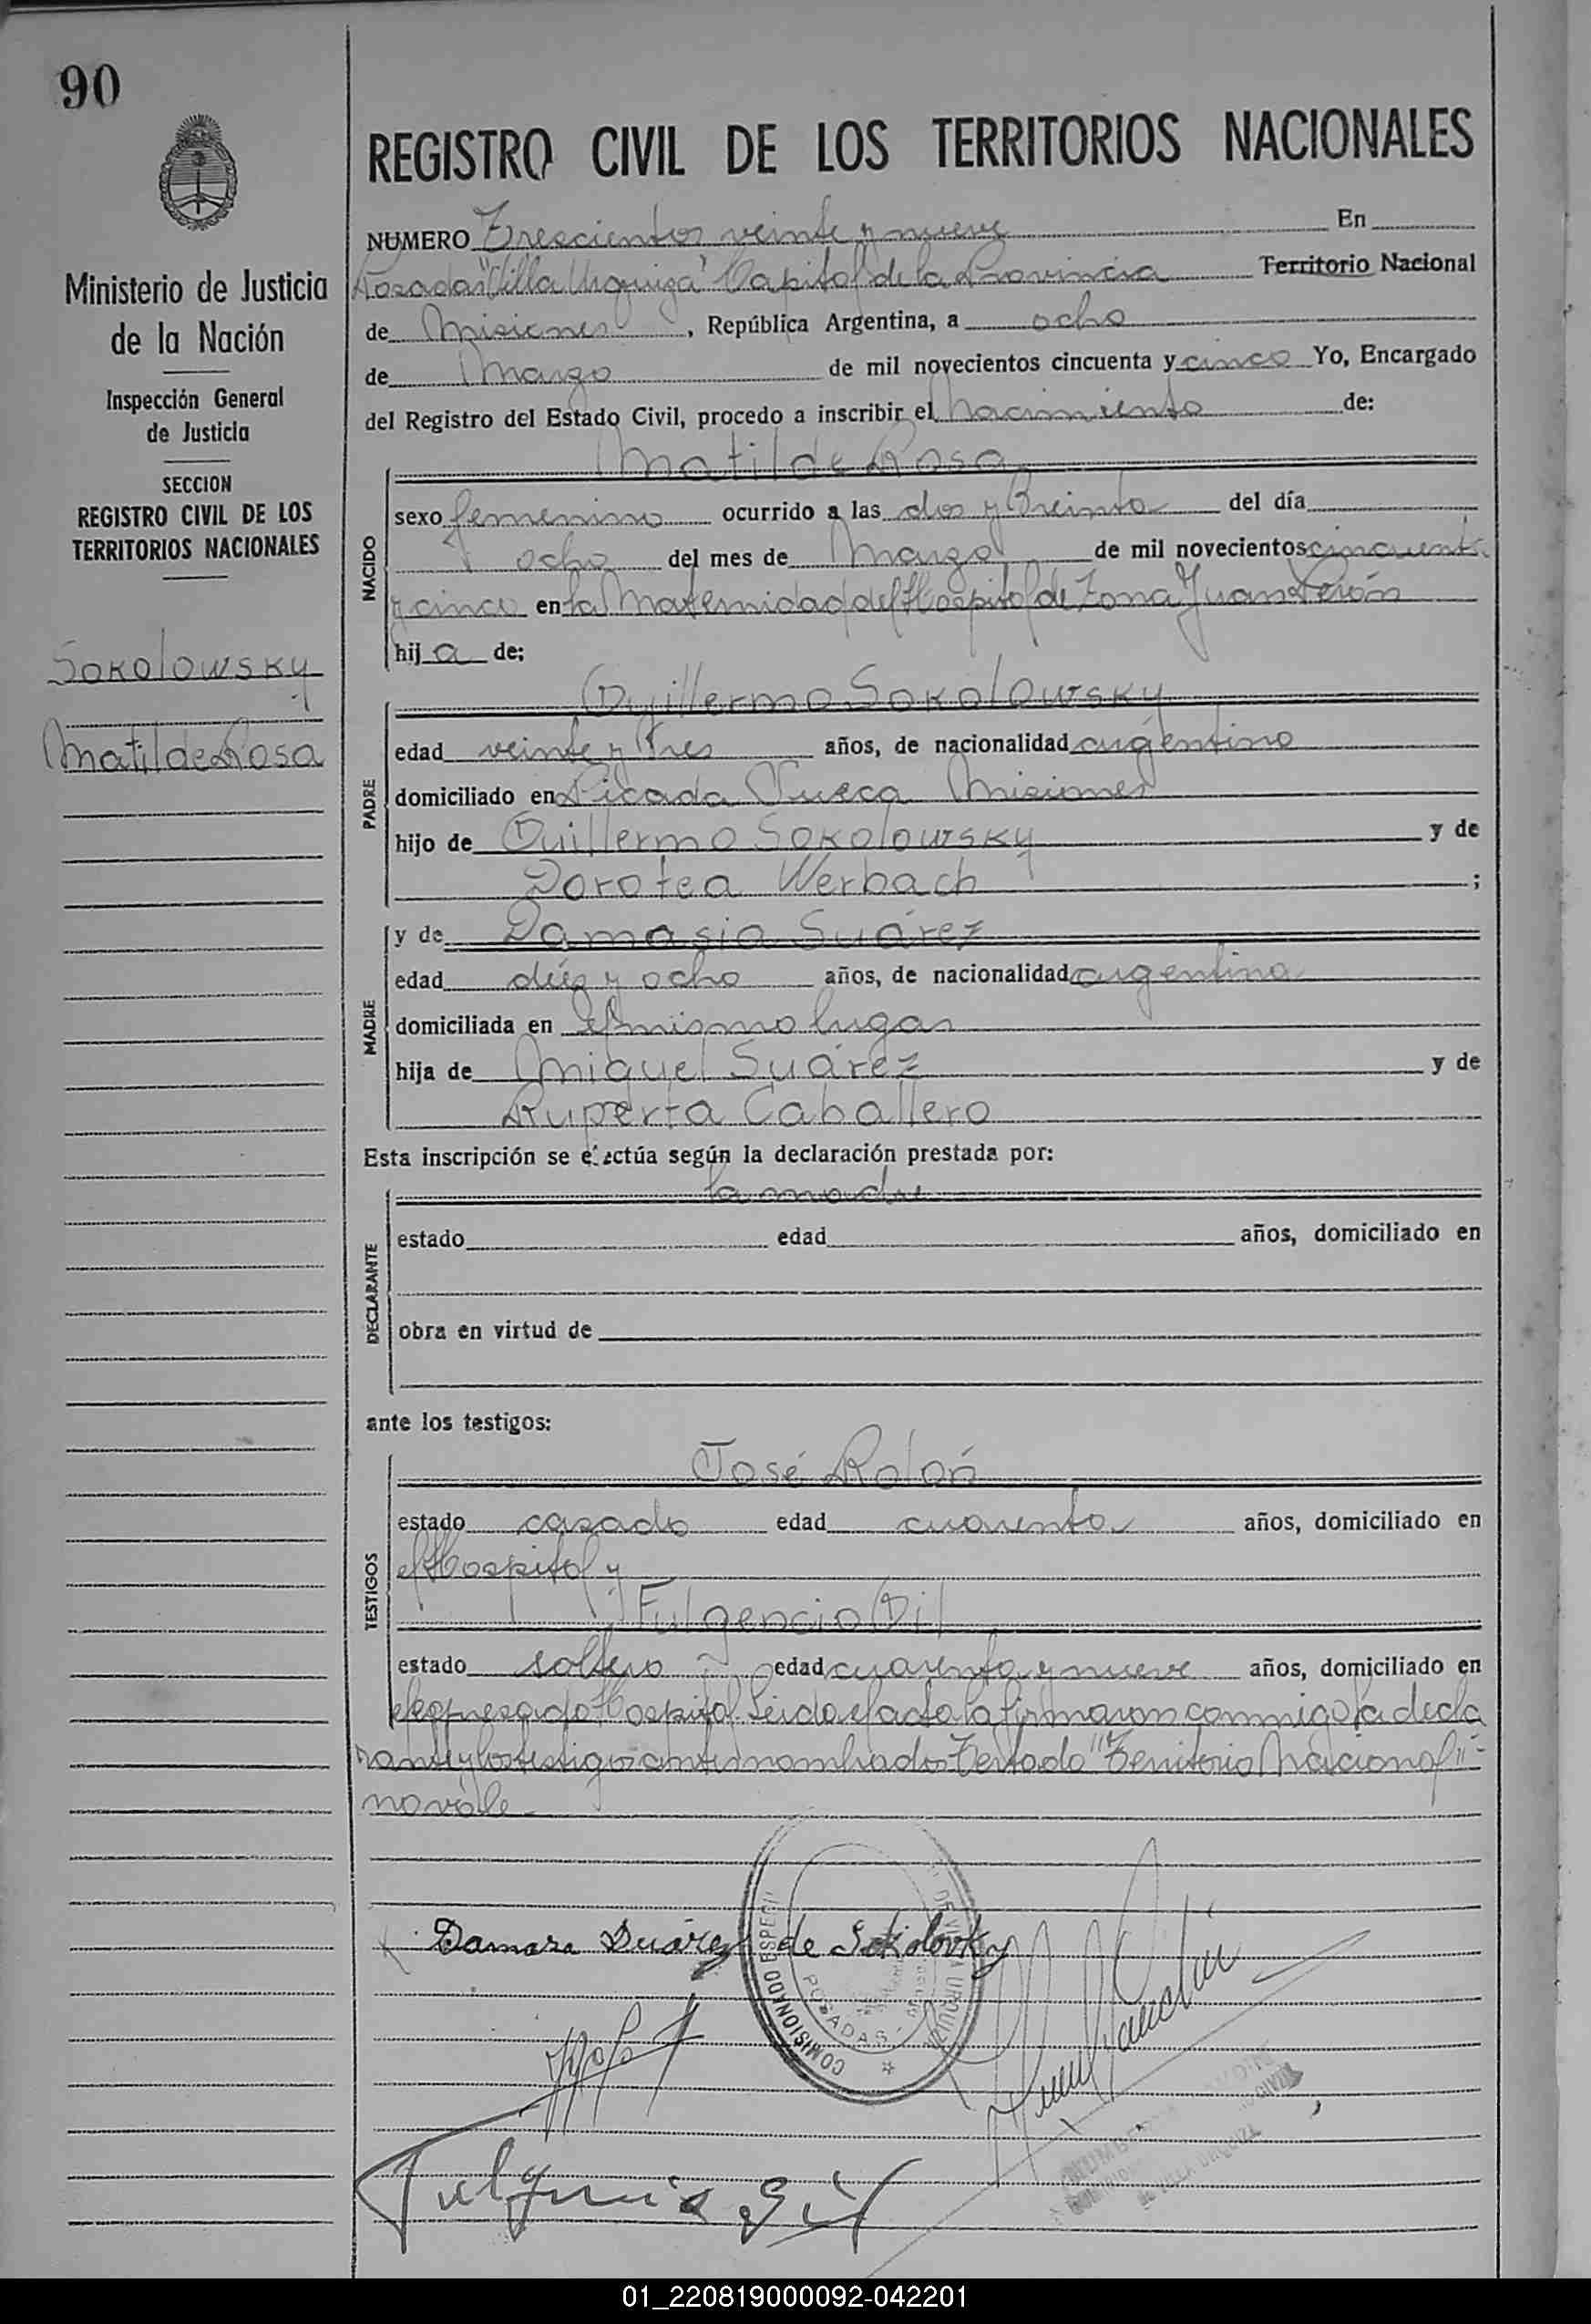 90
REGISTRO CIVIL DE LOS TERRITORIOS NACIONALES
Ministerio de Justicia
de la Nación
Inspección General
de Justicia
SECCION
REGISTRO CIVIL DE LOS
TERRITORIOS NACIONALES
Sokolowsky
Matilde Rosa
NUMERO Trescientos veinte y nueve En
Posadas "Villa Urquiza" Capital de la Provincia Territorio Nacional
de Misiones, República Argentina, a ocho
de Marzo de mil novecientos cincuenta y cinco Yo, Encargado
del Registro del Estado Civil, procedo a inscribir el nacimiento de:
Matilde Rosa
NACIDO
sexo femenino ocurrido a las dos y treinta del día
ocho del mes de Marzo de mil novecientos cincuenta
y cinco en la Maternidad del Hospital de Zona Juan Perón
hija de:
Guillermo Sokolowsky
PADRE
edad veinte y tres años, de nacionalidad argentino
domiciliado en Picada Misiones
hijo de Guillermo Sokolowsky y de
Dorotea Werbach ;
MADRE
y de Damasia Suárez
edad diez y ocho años, de nacionalidad argentina
domiciliada en el mismo lugar
hija de Miguel Suárez y de
Ruperta Caballero
Esta inscripción se efectúa según la declaración prestada por:
la madre
DECLARANTE
estado edad años, domiciliado en
obra en virtud de
ante los testigos:
José Rolón
TESTIGOS
estado casado edad cuarenta años, domiciliado en
el Hospital y
Fulgencio Gil
estado soltero edad cuarenta y nueve años, domiciliado en
el expresado Hospital. Leida el acta la firmaron conmigo la decla
rante y los testigos antes nombrados Testado "Territorio Nacional"-
no vale-
Damasa Suárez de Sokolovky
COMISIONADO ESPECI DE VILLA URQUIZA
POSADAS - 
Fulgencio Gil
VILLA URQUIZA
01_220819000092-042201